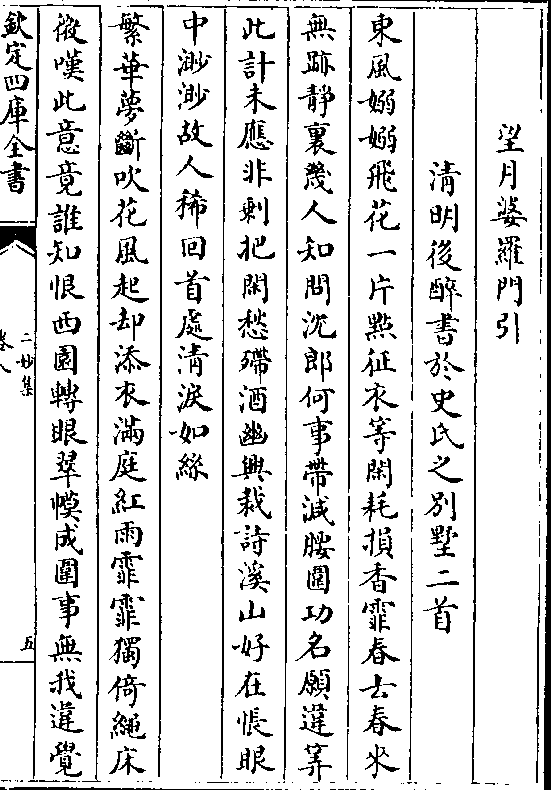 望月婆羅門引
清明後醉書於史氏之別墅二首
東風嫋嫋飛花一片㸃征衣等閑耗損香霏春去春來
無跡静裏幾人知問沈郎何事帶减腰圍功名願違筭
此計未應非剰把閑愁殢酒幽興裁詩溪山好在悵眼
中渺渺故人稀回首處清淚如絲
繁華夢斷吹花風起却添衣滿庭紅雨霏霏獨倚繩床
微嘆此意竟誰知恨西園轉眼翠幙成圍事無我違覺
欽定四庫全書
二妙集
卷八
五